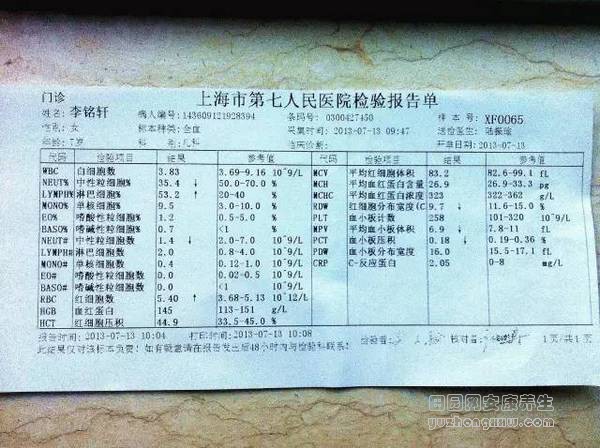 门诊 上海市第七人民医院检验报告单
姓名: 李铭轩 病人编号:143609121928394 条码号: 0300427450 样 本 号: XF0065
性别: 女 标本种类: 全血 采集时间:2013-07-13 09:47 送检医生:
年龄:7岁 科 别: 儿科 临床诊断: 开单日期:2013-07-13
代码 检验项目 结果 参考值 代码 检验项目 结果 参考值
WBC 白细胞数 3.83 3.69-9.16 10^9/L MCV 平均红细胞体积 83.2 82.6-99.1 fL
NEUT% 中性粒细胞% 35.4 ↓ 50.0-70.0 % MCH 平均血红蛋白含量 26.9 26.9-33.3 pg
LYMPH% 淋巴细胞% 53.2 ↑ 20-40 % MCHC 平均血红蛋白浓度 323 322-362 g/L
MONO% 单核细胞% 9.5 3.0-10.0 % RDW 红细胞分布宽度(C 9.7 ↓ 11.6-15.0 %
EO% 嗜酸性粒细胞% 1.2 0.5-5.0 % PLT 血小板计数 258 101-320 10^9/L
BASO% 嗜碱性粒细胞% 0.7 <1 % MPV 平均血小板体积 6.9 ↓ 7.8-11 fL
NEUT# 中性粒细胞数 1.4 ↓ 2.0-7.0 10^9/L PCT 血小板压积 0.18 ↓ 0.19-0.36 %
LYMPH# 淋巴细胞数 2.0 0.8-4.0 10^9/L PDW 血小板分布宽度 16.0 15.5-17.1 fL
MONO# 单核细胞数 0.4 0.12-1.0 10^9/L CRP C-反应蛋白 2.05 0-8 mg/L
EO# 嗜酸性粒细胞数 0.0 0.02-0.5 10^9/L
BASO# 嗜碱性粒细胞数 0.0 <1 10^9/L
RBC 红细胞数 5.40 ↑ 3.68-5.13 10^12/L
HGB 血红蛋白 145 113-151 g/L
HCT 红细胞压积 44.9 33.5-45.0 %
报告时间:2013-07-13 10:04 打印时间:2013-07-13 10:08 检验者: 核对者: 1页/共1页
此结果仅对该标本负责!如有疑意请在报告发出后48小时内与检验科联系!
安康养生